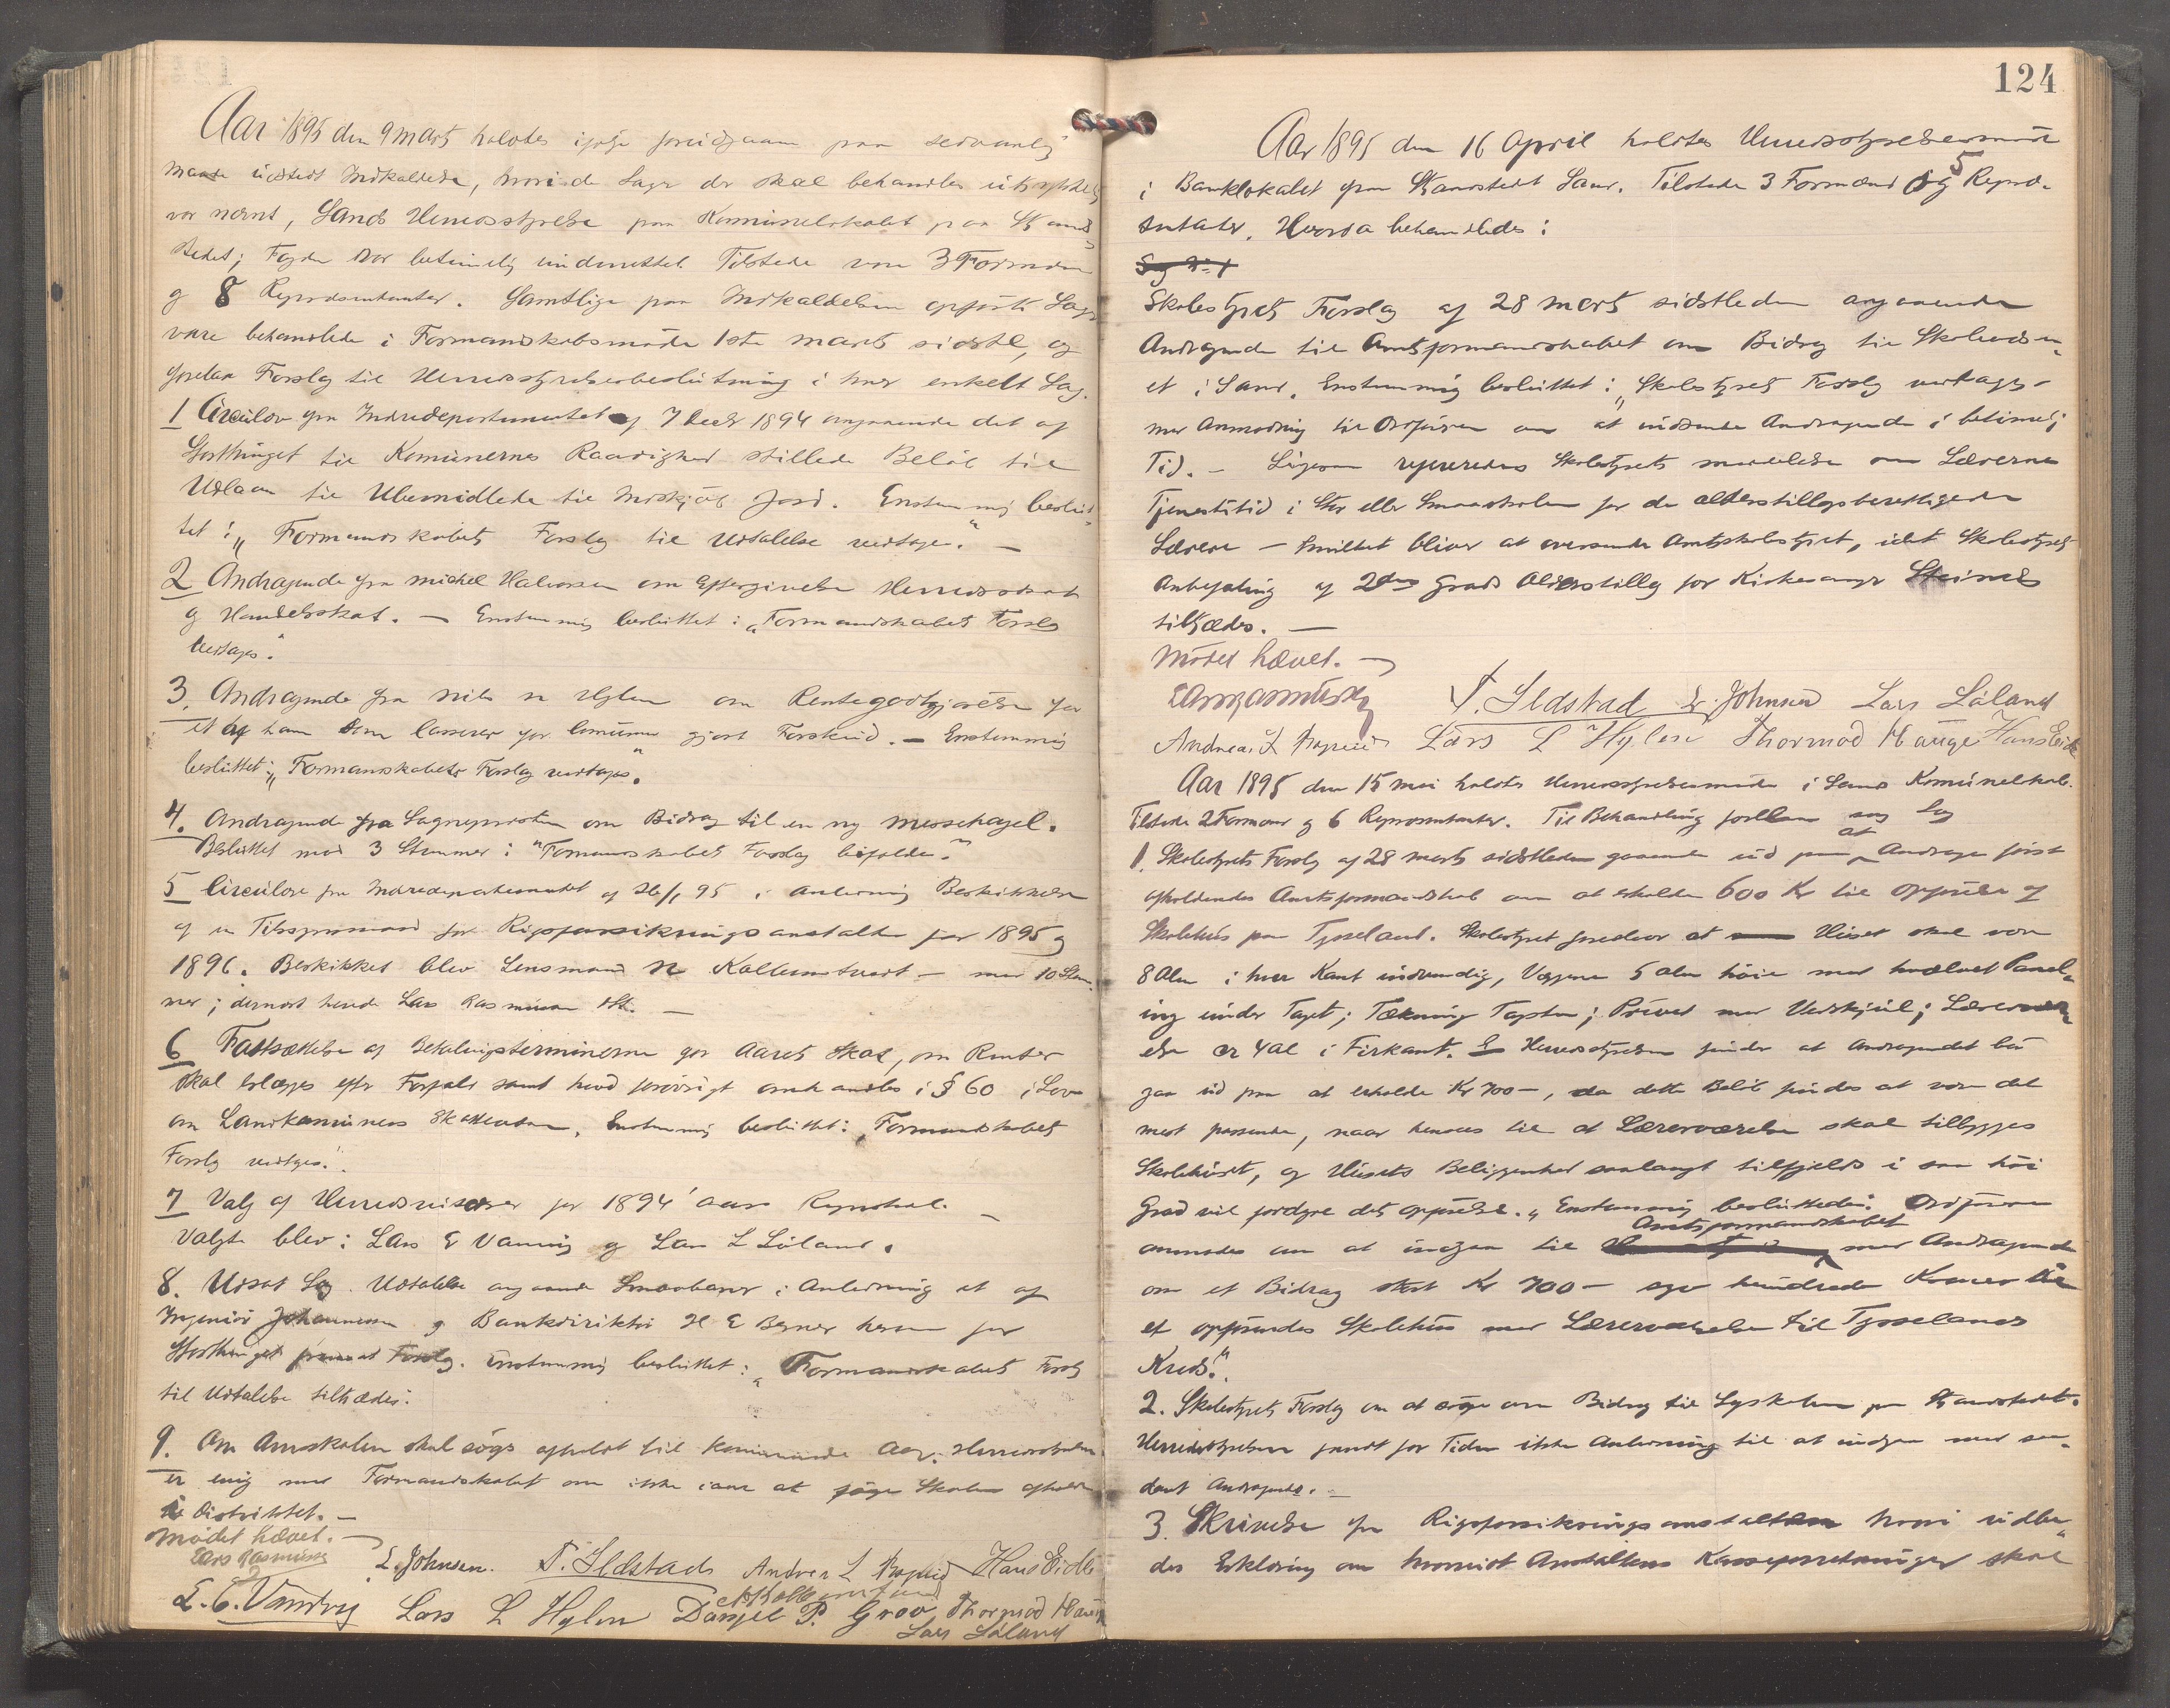 Aar 1895 den 9 Marts holdtes ifølge forudgaaen paa sedvanlig
Maade udstedt Indkaldelse, hvori de Sager der skal behandles udtrykkelig
var nævnt, Sands Herredsstyrelse paa Kommunelokalet paa Strand-
stedet; Fogden var betimelig underrettet. Tilstede var 3 Formænd
og 8 Repræsentanter. Samtlige paa Indkaldelsen opførte Sager
vare behandlede i Formandskabsmøde 1ste Marts sidstl, og
forelaa Forslag til Herredsstyrelsesbeslutning i hver enkelt Sag.
1 Circulær fra Indredepartementet af 7 Decbr 1894 angaaende det af
Storthinget til Komunernes Raadighed stillede Beløb til
Udlaan til Ubemidlede til Indkjøb Jord. Enstemmig beslut-
tet: „Formandskabets Forslag til Udtalelse vedtages." —
2 Andragende fra Michel Halvorsen om Eftergivelse Herredsskat
og Handelsskat. — Enstemmig besluttet: „Formandskabets Forslag
vedtages."
3. Andragende fra Nils N Hylen om Rentegodtgjørelse for
et af ham som Casserer for Comunen gjort Forskud. — Enstemmig
besluttet: „Formandskabets Forslag vedtages".
4. Andragende fra Sogneprästen om Bidrag til en ny Messehagel.
Besluttet med 3 Stemmer: "Formandskabets Forslag bifaldes."
5 Circulære fra Indredepartementet af 26/1 95 i Anledning Beskikkelse
af en Tilsynsmand for Rigsforsikringsanstalten for 1895 og
1896. Beskikket blev Lensmand N Kallemtvedt — med 10 Stem-
mer; dernæst havde Lars Rasmussen 1 St. —
6 Fastsættelse af Betalingsterminerne for Aarets Skat, om Renter
skal erlægges efter Forfald samt hvad forøvrigt omhandles i § 60 i Lov
om Landkomunens Skattevæsen. Enstemmig besluttet: „Formandskabets
Forslag vedtages."
7 Valg af Herredsrevisorer for 1894 aars Regnskab. —
Valgte blev: Lars E Vanvig og Lars L Løland.
8. Udsat Sag. Udtalelse angaaende Smaabaner i Anledning et af
Ingeniør Johannesen og Bankdirektør H E Berner herom for
Storthinget fremsat Forslag. Enstemmig besluttet: „Formandskabets Forslag
til Udtalelse tiltrædes."
9. Om Amtsskolen skal søges afholdt til kommende Aar. Herredsstyrelsen
er enig med Formandskabet om ikke iaar at søge Skolen afholdt
i Distriktet. —
Mødet hævet. —
Lars Rasmussen L. Johnsen. T. Ildstad Andreas L Hans Eide
L. E. Vanvig Lars L Hylen N Kallemtvedt Daniel P. Groo Thormod Hauge
Lars Løland
124
Aar 1895 den 16 April holdtes Herredsstyrelsesmøde
i Banklokalet paa Strandstedet Sand. Tilstede 3 Formænd og 5 Repræ-
sentanter. Hvorda behandledes:
Sag No 1
Skolestyrets Forslag af 28 Marts sidstleden angaaende
Andragende til Amtsformandskabet om Bidrag til Skolevæsen-
et i Sand. Enstemmig besluttet: „Skolestyrets Forslag vedtages —
med Anmodning til Ordføren om at indsende Andragende i betimelig
Tid. — Ligesom refereredes Skolestyrets meddelelse om Lærernes
Tjenestetid i Stor eller Smaaskolen for de alderstillægsberettigede
Lærere — hvilket bliver at oversende Amtsskolestyret, idet Skolestyrets
Anbefaling af 2den Grads Alderstillæg for Kirkesanger Steines
tiltrædes. —
Mødet hævet. —
T. Ildstad L. Johnsen Lars Løland
Andreas L Lars L Hylen Thormod Hauge Hans Eide
Aar 1895 den 15 Mai holdtes Herredsstyrelsesmøde i Sands Komunelokal.
Tilstede 2 Formænd og 6 Repræsentanter. Til Behandling forelaa Sag
1. Skolestyrets Forslag af 28 Marts sidstleden gaaende ud paa at Andrage først
afholdendes Amtsformandskab om at erholde 600 Kr til Opførelse af
Skolehus paa Tysseland. Skolestyret foreslaar at Huset skal være
8 Alen i hver Kant indvendig, Væggene 5 alen høie med hvælvet Panel-
ing under Taget; Tækning Tagsten; Privet med Vedskjul; Lærerværel-
else er 4 Al i Firkant. Herredsstyrelsen finder at Andragendet bør
gaa ud paa at erholde Kr 700 —, da dette Beløb findes at være det
mest passende, naar hensees til at Lærerværelse skal tillægges
Skolehuset, og Husets Beliggenhed saalangt tilfjelds i saa høi
Grad vil fordyre dets opførelse. „Enstemmig besluttedes: Ordføren
anmodes om at indgaa til Amtsformandskabet med Andragende
om et Bidrag stort Kr 700 — syv hundrede Kroner til
et opførendes Skolehus med Lærerværelse til Tysselands
Kreds."
2. Skolestyrets Forslag om at søge om Bidrag til Syskolen paa Strandstedet.
Herredsstyrelsen fandt for Tiden ikke Anledning til at indgaa med saa-
dant Andragende. —
3. Skrivelse fra Rigsforsikringsanstalten hvori udbe-
des Erklæring om hvorvidt Anstaltens Kasseforretninger skal